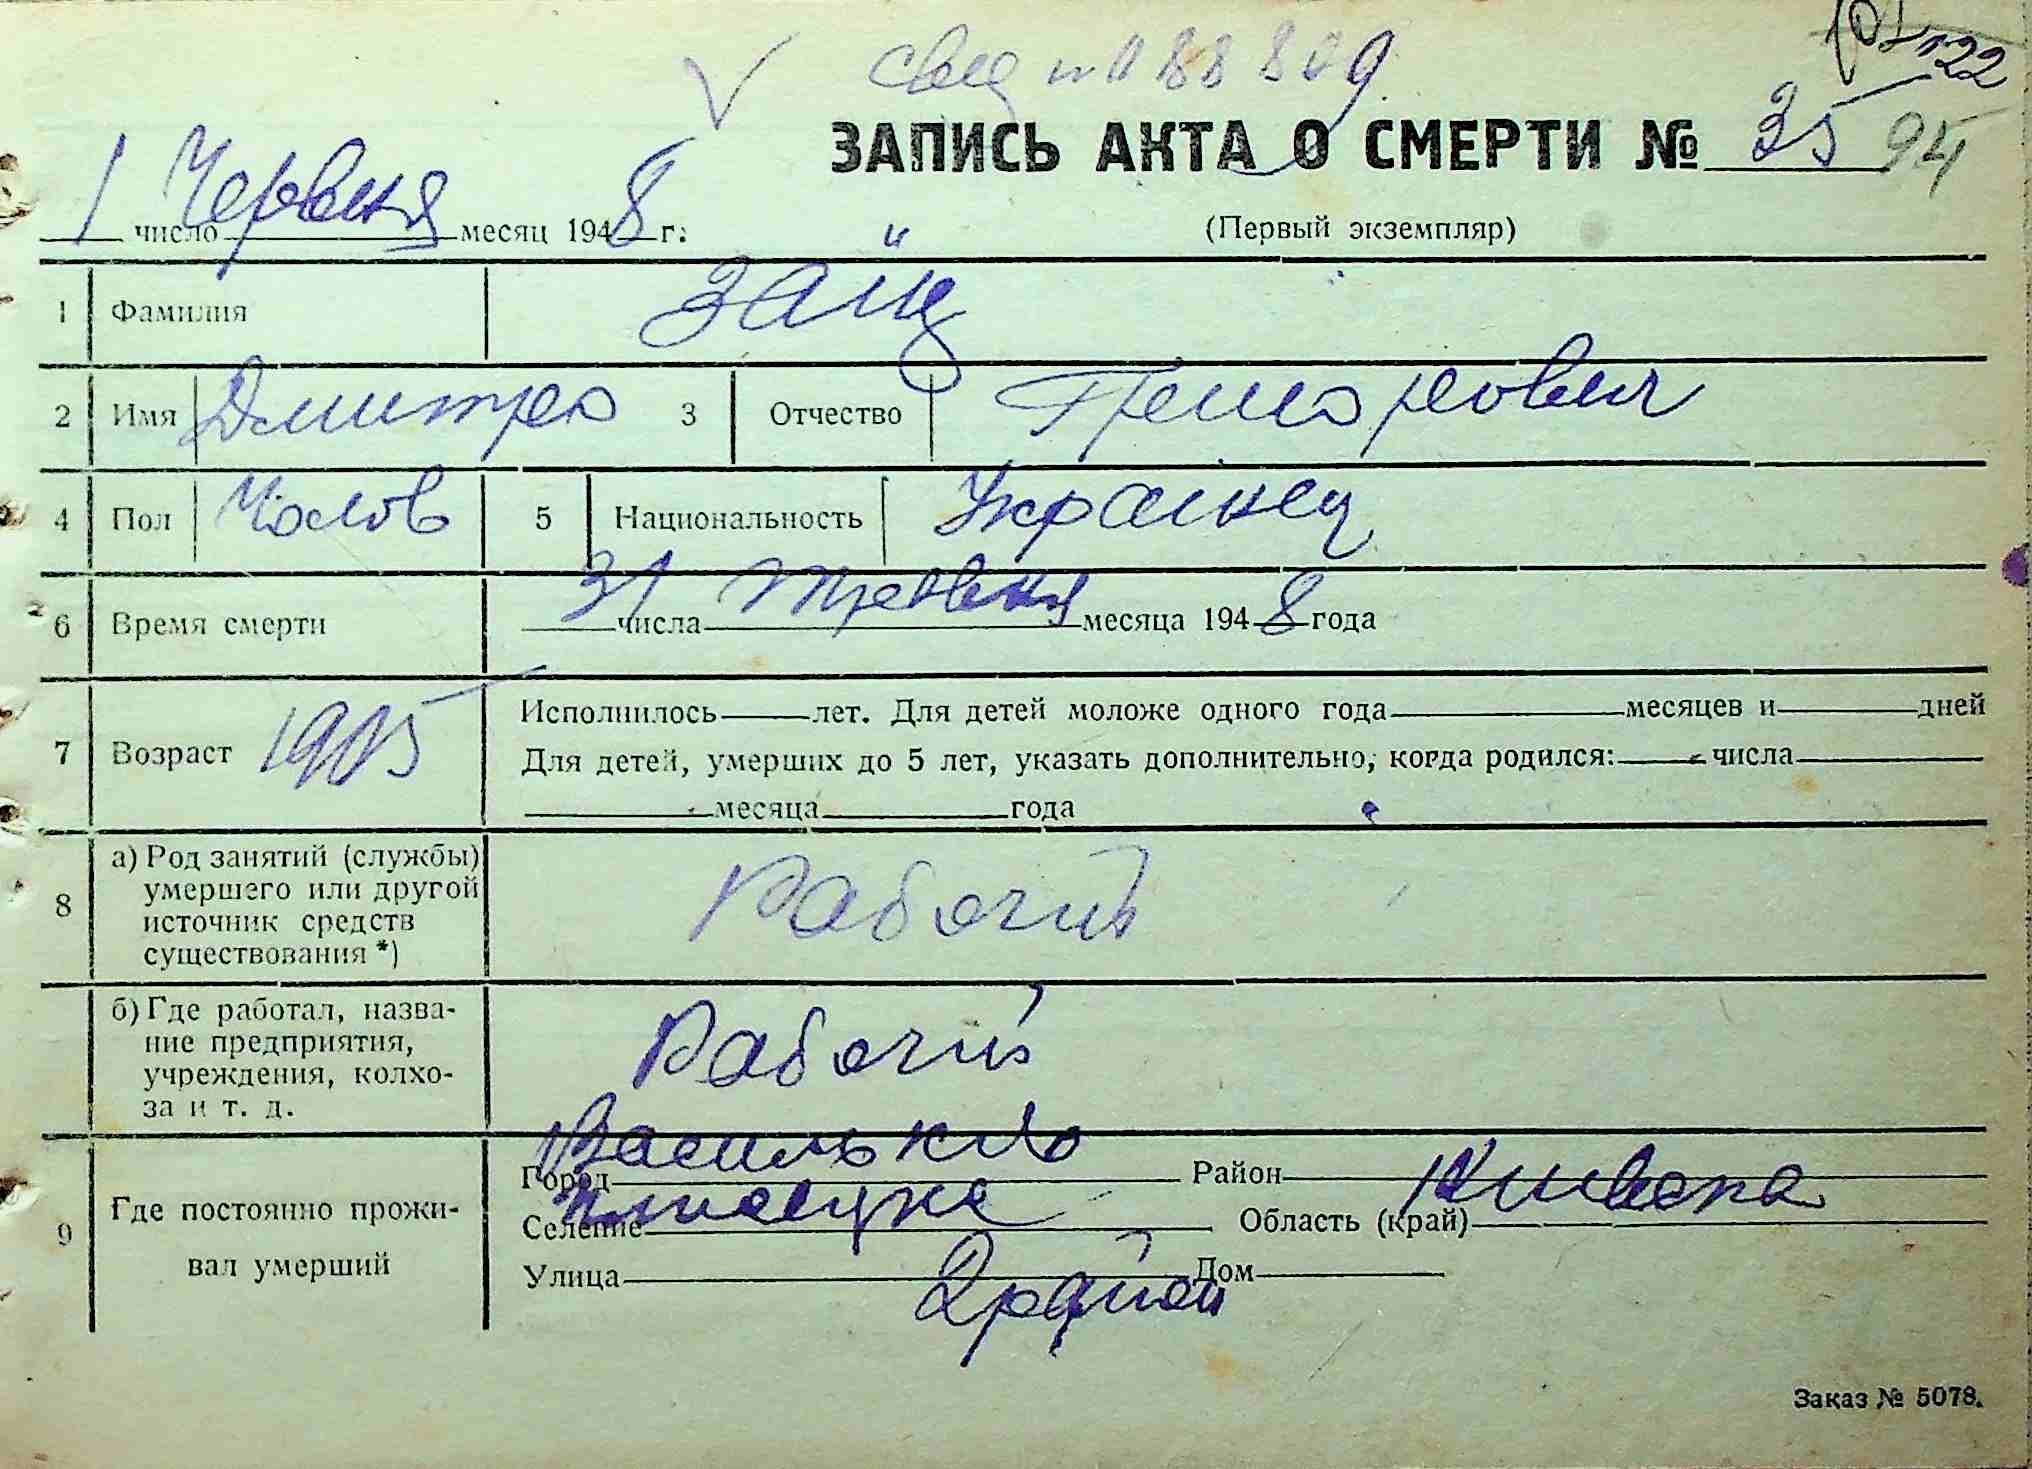 122
35 94
ЗАПИСЬ АКТА О СМЕРТИ №
1 число Червня месяц 1948 г.
(Первый экземпляр)
1 Фамилия Заїц
2 Имя Дмитро 3 Отчество Григорович
4 Пол Чолов 5 Национальность Українец
6 Время смерти 31 числа травня месяца 1948 года
7 Возраст 1905 Исполнилось лет. Для детей моложе одного года месяцев и дней
Для детей, умерших до 5 лет, указать дополнительно, когда родился: числа
месяца года
8 а) Род занятий (службы) умершего или другой источник средств существования *) Рабочий
б) Где работал, название предприятия, учреждения, колхоза и т. д. Рабочий
9 Где постоянно проживал умерший
Город Васильків Район
Селение Область (край) Киевска
Улица Дом
2 район
Заказ № 5078.